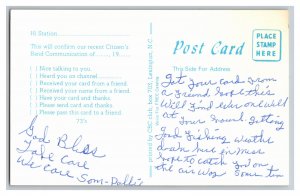 Hi Station
This will confirm our recent Citizen's
Band Communication of ........, 19.....
[ ] Nice talking to you.
[ ] Heard you on channel
[ ] Received your card from a friend.
[ ] Received your name from a friend.
[ ] Have your card and thanks.
[ ] Please send card and thanks.
[ ] Please past this card to a friend!
73's
God Bless
Take Care
We Care Som-
printed by CBC club, box 7701, Lexington, N.C.
Post Card
PLACE
STAMP
HERE
This Side For Address
Got your card from
a Friend hope this
Will Find ever one well
at your
Good Fishing weather
down here
hope to catch you on
the air way Some